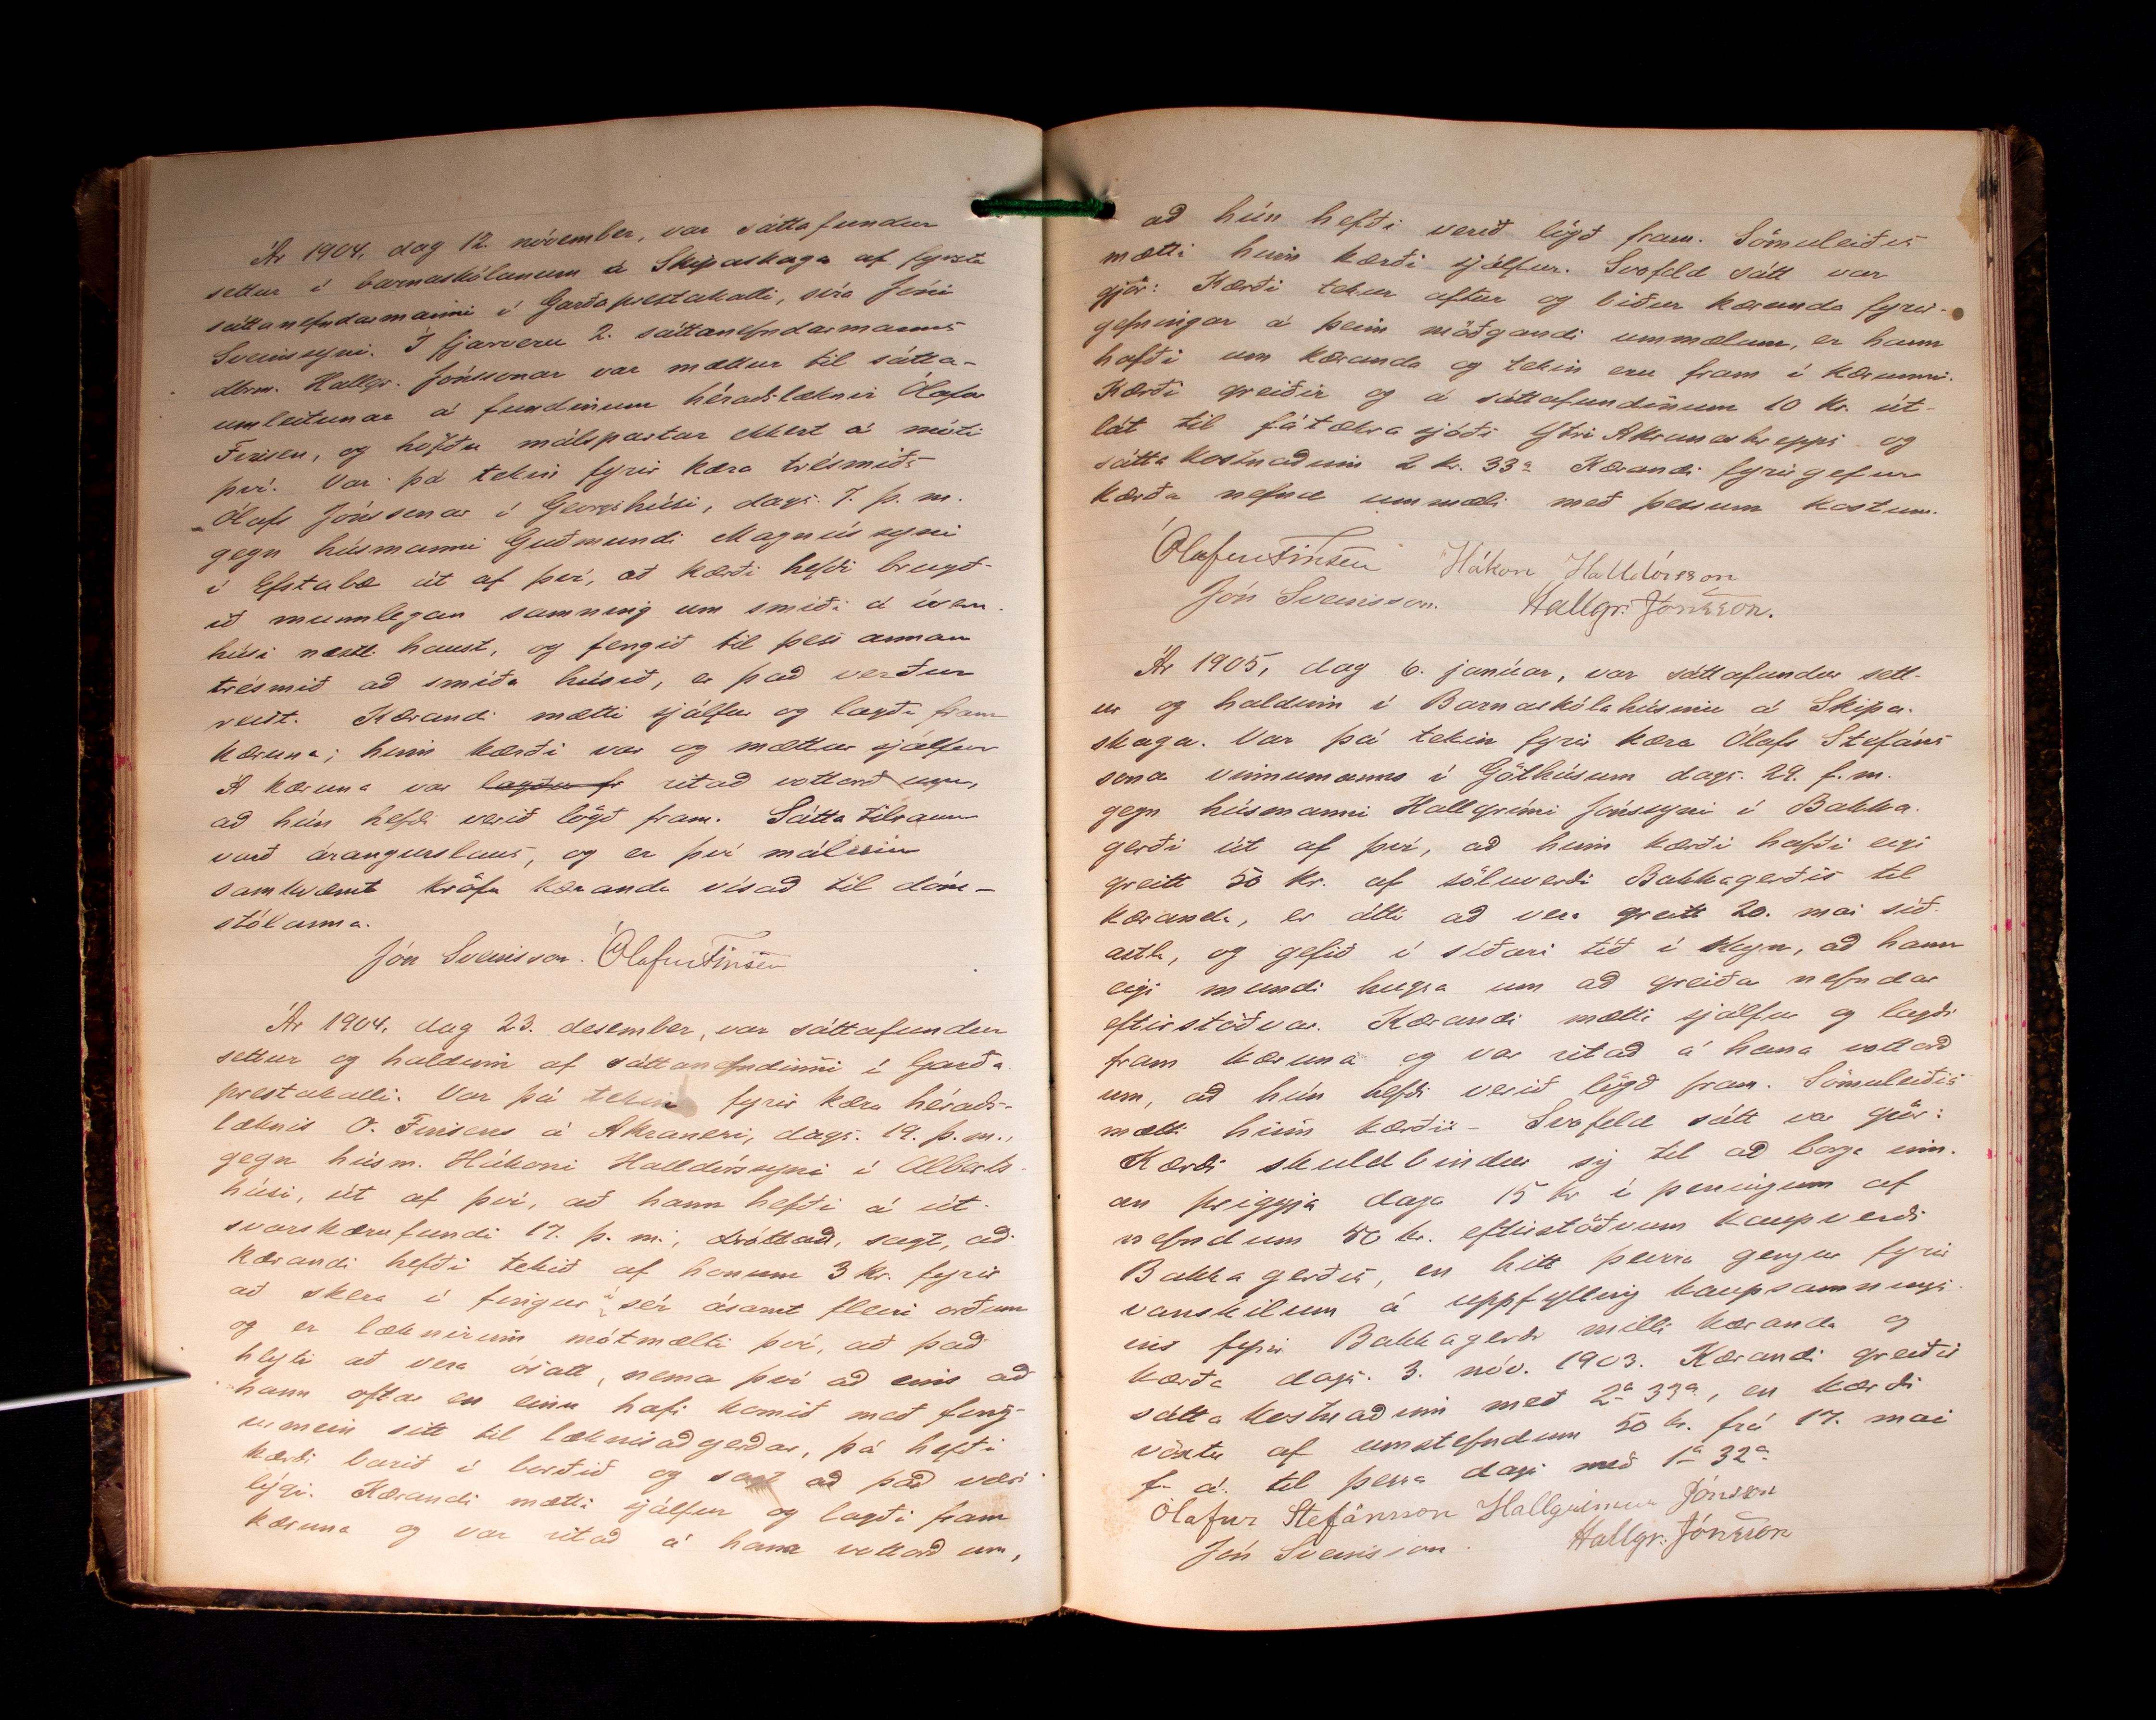 Ár 1904, dag 12. nóvember, var sáttafundur
settur í barnaskólanum á Skipaskaga af fyrsta
sáttanefndarmanni í Garðaprestakalli, síra Jóni
Sveinssyni. Í fjarveru 2. sáttanefndarmanns
dbrm. Hallgr. Jónssonar var mættur til sátta-
umleitunar á fundinum héraðslæknir Ólafur
Finsen, og höfðu málspartar ekkert á móti
því. Var þá tekin fyrir kæra trésmiðs
Ólafs Jónssonar í Georgshúsi, dags. 7. þ. m.
gegn húsmanni Guðmundi Magnússyni
í Efstabæ út af því, að kærði hefði brugð-
ið munnlegan samning um smíði á íveru-
húsi næstl. haust, og fengið til þess annan
trésmið að smíða húsið, er það verður
reist. Kærandi mætti sjálfur og lagði fram
kæruna; hinn kærði var og mættur sjálfur
Á kæruna var lagðu fr ritað vottorð um,
að hún hefði verið lögð fram. Sátta tilraun
varð árangurslaus, og er því málinu
samkvæmt kröfu kæranda vísað til dóm-
stólanna.
Jón Sveinsson. Ólafur Finsen
Ár 1904, dag 23. desember, var sáttafundur
settur og haldinn af sáttanefndinni í Garða-
prestakalli. Var þá tekin fyrir kæra héraðs-
læknis O. Finsens á Akranesi, dags. 19. þ. m.,
gegn húsm. Hákoni Halldórssyni í Alberts-
húsi, út af því, að hann hefði á út-
svarskærufundi 17. þ. m., dróttað, sagt, að
kærandi hefði tekið af honum 3 kr. fyrir
að skera í fingur á sér ásamt fleiri orðum
og er læknirinn mótmælti því, að það
hlyti að vera ósatt, nema því að eins að
hann oftar en einu hafi komið með fing-
urmein sitt til læknisaðgerðar, þá hefði
kærði barið í borðið og sagt að það væri
lýgi. Kærandi mætti sjálfur og lagði fram
kæruna og var ritað á hana vottorð um,
að hún hefði verið lögð fram. Sömuleiðis
mætti hinn kærði sjálfur. Svofeld sátt var
gjör: Kærði tekur aftur og biður kæranda fyrir-
gefningar á þeim móðgandi ummælum, er hann
hafði um kæranda og tekin eru fram í kærunni.
Kærði greiðir og á sáttafundinum 10 kr. út-
lát til fátækrasjóðs Ytri Akraneshrepps og
sáttakostnaðinn 2 kr. 33a Kærandi fyrirgefur
kærða nefnd ummæli með þessum kostum.
Ólafur Finsen Hákon Halldórsson
Jón Sveinsson. Hallgr. Jónsson.
Ár 1905, dag 6. janúar, var sáttafundur sett-
ur og haldinn í Barnaskólahúsinu á Skipa-
skaga. Var þá tekin fyrir kæra Ólafs Stefáns
sonar vinnumanns í Göthúsum dags. 29. f. m.
gegn húsmanni Hallgrími Jónssyni í Bakka-
gerði út af því, að hinn kærði hafði eigi
greitt 50 kr. af söluverði Bakkagerðis til
kæranda, er átti að vera greitt 20. mai síð-
astl., og gefið í síðari tíð í skyn, að hann
eigi mundi hugsa um að greiða nefndar
eftirstöðvar. Kærandi mætti sjálfur og lagði
fram kæruna og var ritað á hana vottorð
um, að hún hefði verið lögð fram. Sömuleiðis
mætti hinn kærði. – Svofeld sátt var gjör:
Kærði skuldbindur sig til að borga inn-
an þriggja daga 15 kr í peningum af
nefndum 50 kr. eftirstöðvum kaupverðs
Bakkagerðis, en hitt þeirra gengur fyrir
vanskilum á uppfylling kaupsamnings-
ins fyrir Bakkagerði milli kæranda og
kærða dags. 3. nóv. 1903. Kærandi greiðir
sáttakostnaðinn með 2a 33a, en kærði
vöxtu af umstefndum 50 kr. frá 17. mai
f. á. til þessa dags með 1a 32a
Ólafur Stefánsson Hallgrímur Jónsson
Jón Sveinsson. Hallgr. Jónsson